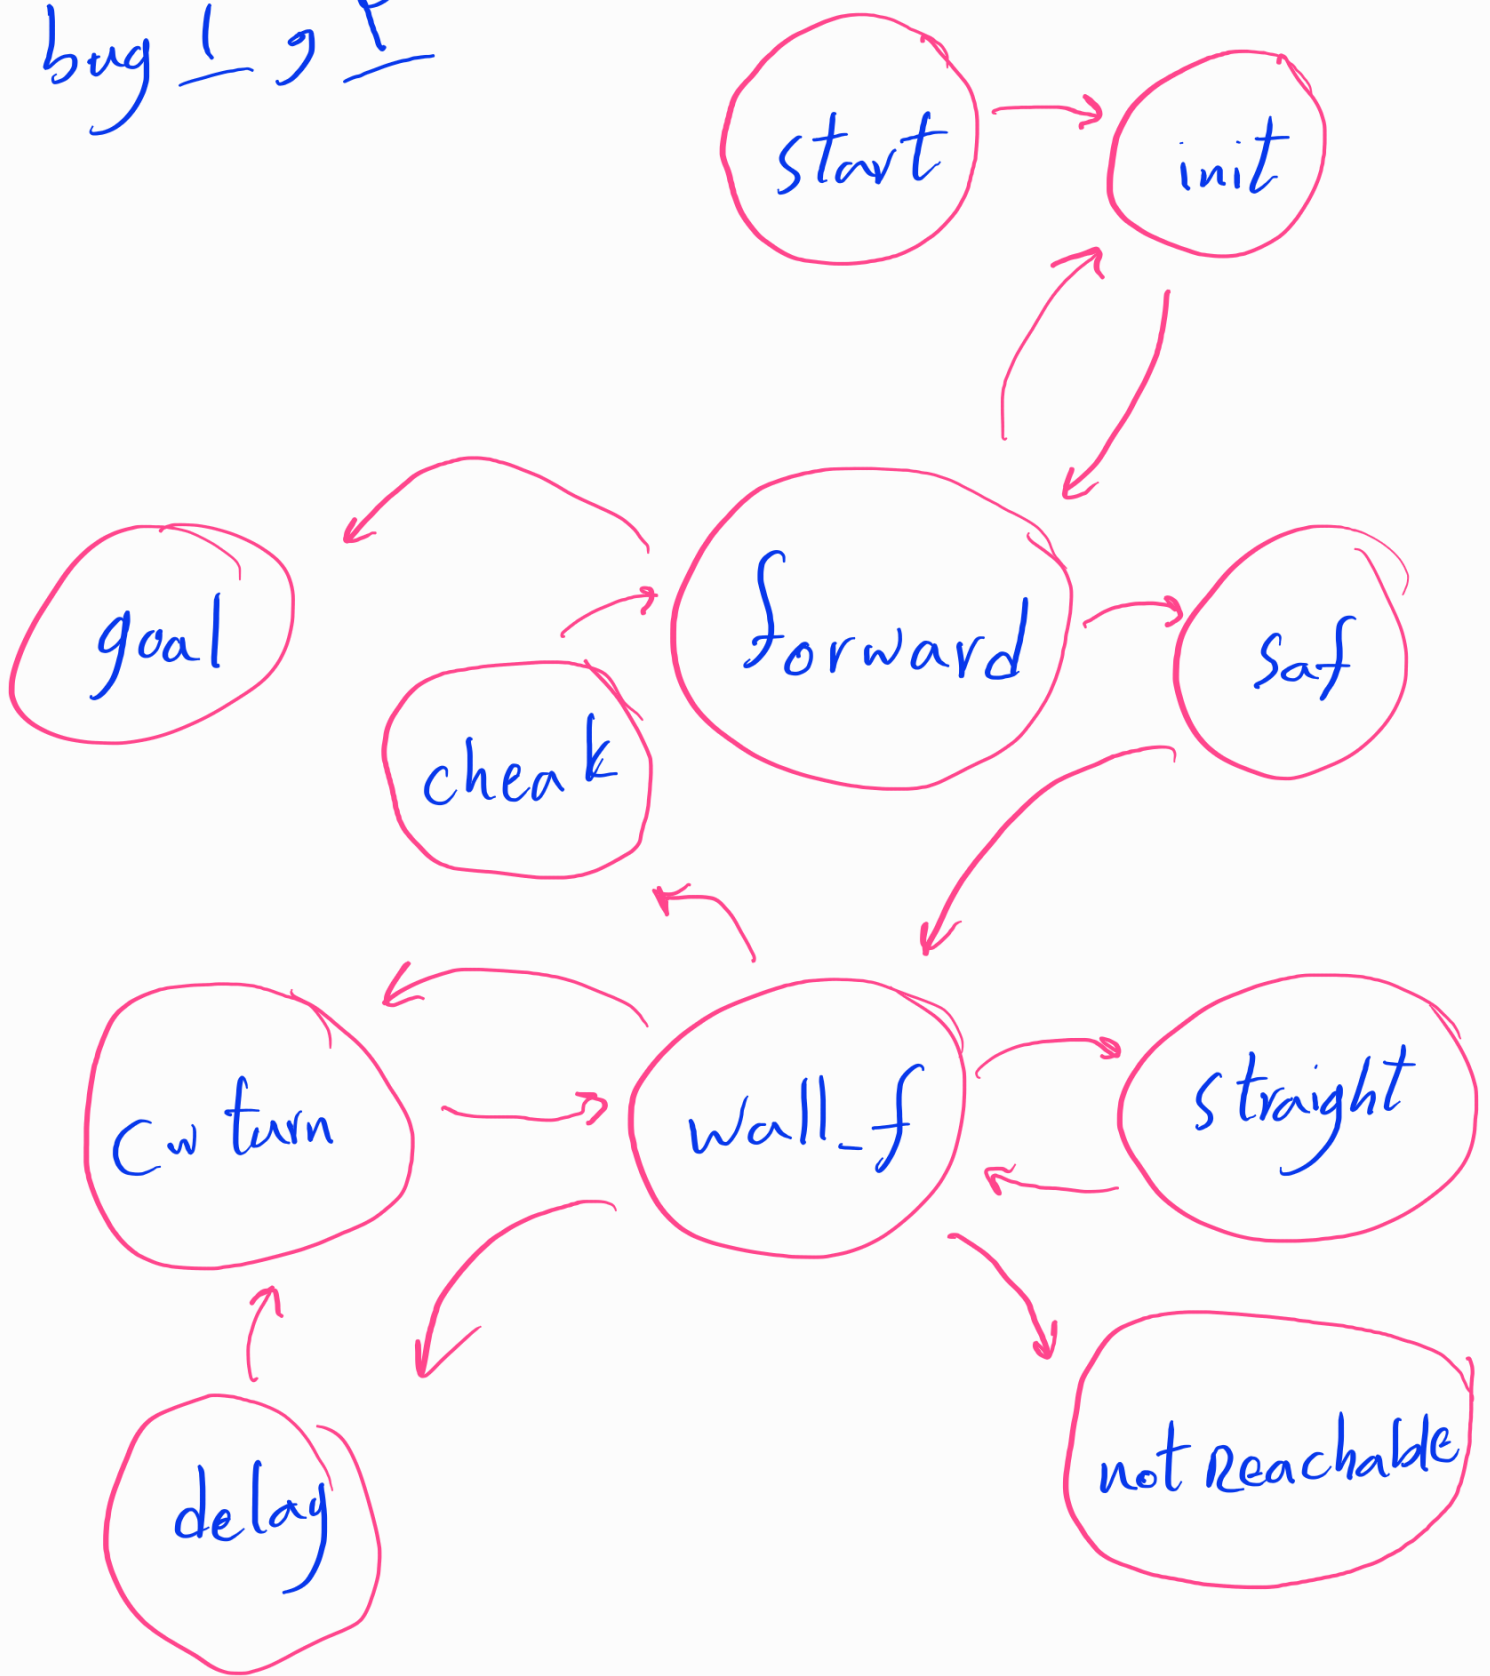 bug ۱ و ۲
start
init
goal
forward
saf
cheak
cw turn
wall_f
straight
delay
not Reachable